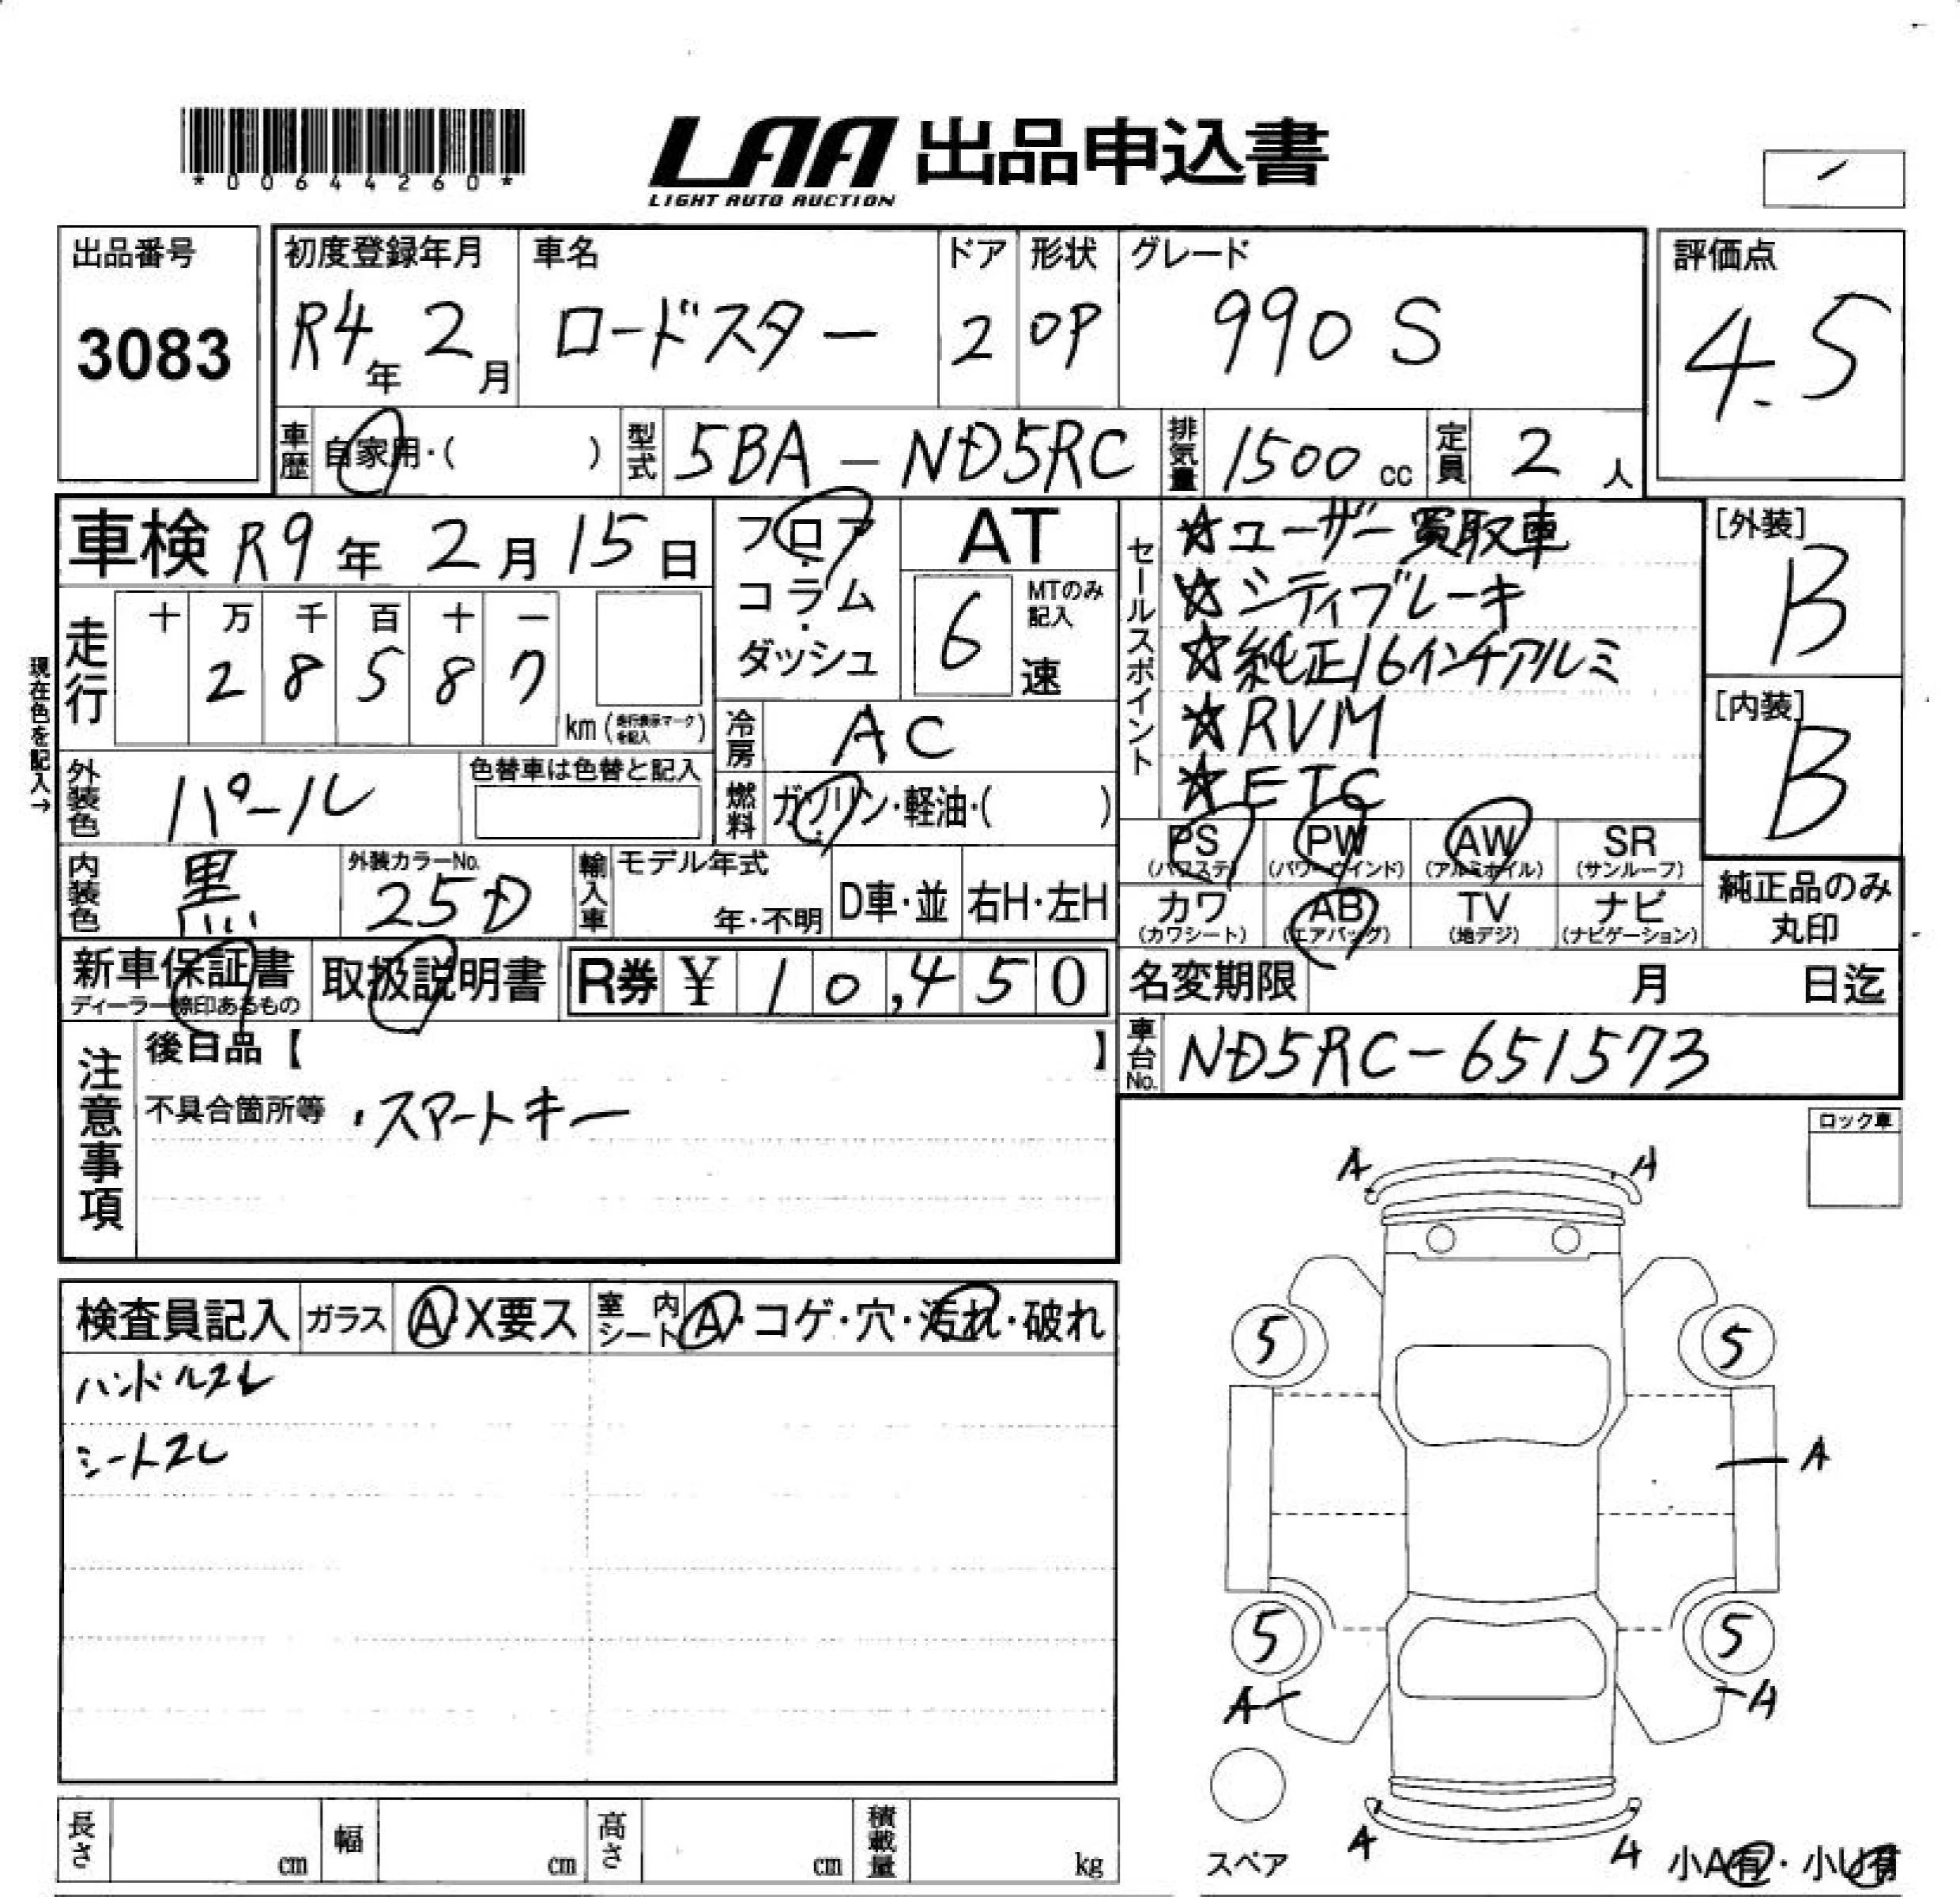 *00644260*
LAA 出品申込書
LIGHT AUTO AUCTION
出品番号
3083
初度登録年月
R4年 2月
車名
ロードスター
ドア
2
形状
OP
グレード
990 S
評価点
4.5
車歴 自家用・( )
型式 5BA-ND5RC
排気量 1500 cc
定員 2 人
車検 R9年 2月 15日
フロア
・
コラム
・
ダッシュ
AT
6
MTのみ
記入
速
走行
十 万 千 百 十 一
2 8 5 8 7
km(走行表示マークを記入)
現在色を記入→
冷房 AC
外装色 パール
色替車は色替と記入
燃料 ガソリン・軽油・( )
内装色 黒
外装カラーNo.
25D
輸入車
モデル年式
年・不明
D車・並
右H・左H
セールスポイント
☆ユーザー買取車
☆シティブレーキ
☆純正16インチアルミ
☆RVM
☆ETC
[外装]
B
[内装]
B
PS
(パワステ)
PW
(パワーウインド)
AW
(アルミホイル)
SR
(サンルーフ)
カワ
(カワシート)
AB
(エアバッグ)
TV
(地デジ)
ナビ
(ナビゲーション)
純正品のみ
丸印
新車保証書
ディーラー捺印あるもの
取扱説明書
R券 ¥ 10,450
名変期限 月 日迄
車台No. ND5RC-651573
注意事項
後日品【 】
不具合箇所等 ・スマートキー
ロック車
検査員記入
ガラス A・X要ス
室内シート A・コゲ・穴・汚れ・破れ
ハンドルスレ
シートスレ
A A
5 5
A
5 5
A A
A A
スペア
小A有・小U有
長さ cm
幅 cm
高さ cm
積載量 kg